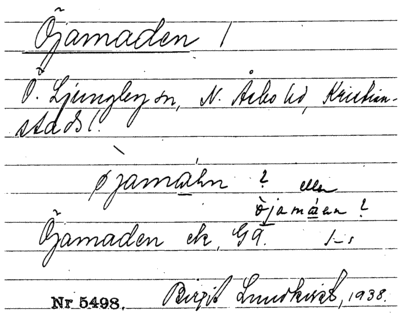 Öjamaden /
Ö. Ljungby sn, N. Åsbo hd, Kristian-
stads l.
øjamàhn ? eller
öjamáan ?
Öjamaden ek, GÄ. 1-1
Nr 5498. Birgit Lundkvist, 1938.